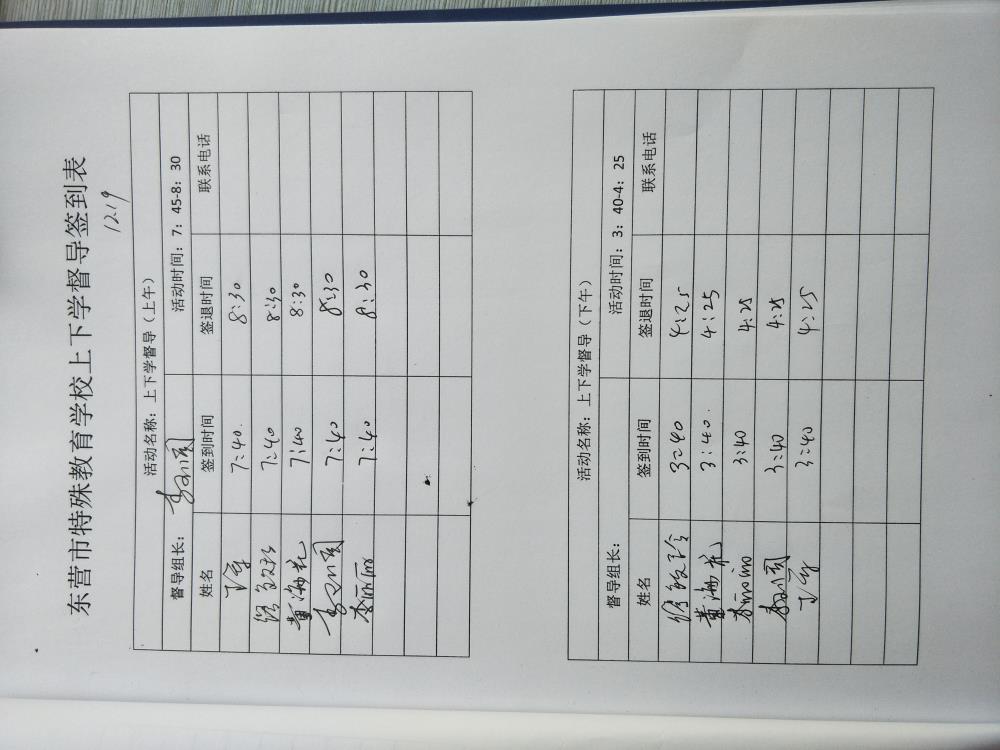 东营市特殊教育学校上下学督导签到表
12.19
活动名称：上下学督导（上午）
督导组长： 活动时间：7：45-8：30
姓名 签到时间 签退时间 联系电话
7:40. 8:30
7:40 8:30
黄海花 7:40 8:30
7:40 8:30
李丽丽 7:40 8:30
活动名称：上下学督导（下午）
督导组长： 活动时间：3：40-4：25
姓名 签到时间 签退时间 联系电话
3:40 4:25
黄海花 3:40. 4:25
李丽丽 3:40 4:25
3:40 4:25
3:40 4:25